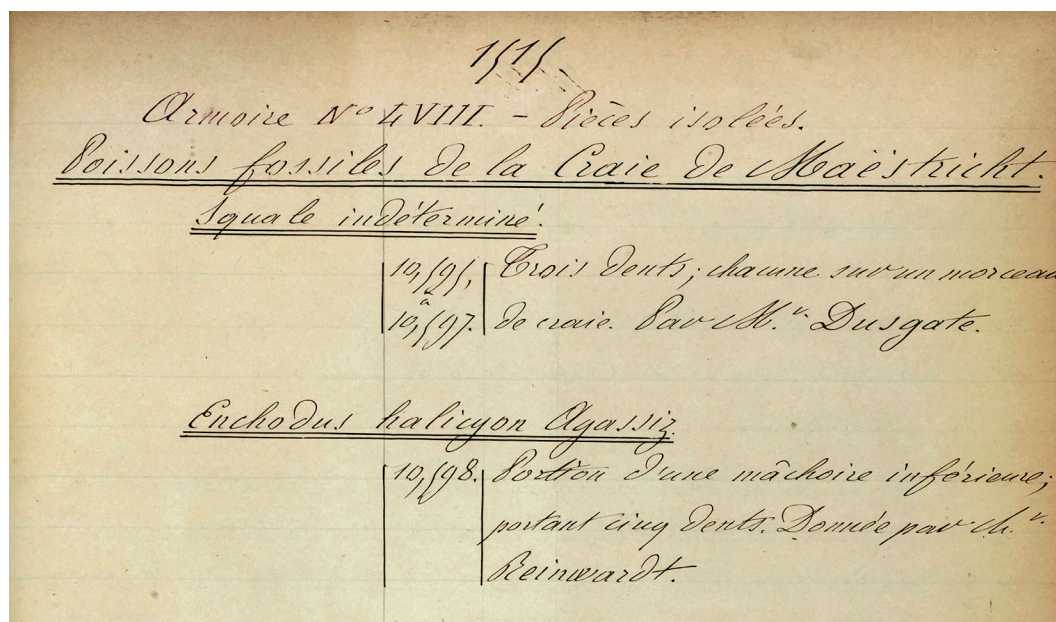 1515.
Armoire No LVIII. - Pièces isolées.
Poissons fossiles de la Craie de Maëstricht.
Squale indéterminé.
10,595, Trois dents; chacune sur un morceau
à
10,597. de craie. Par M.r Dusgate.
Enchodus halicyon Agassiz.
10,598. Portion d'une mâchoire inférieure;
portant cinq dents. Donnée par M.r
Reinwardt.